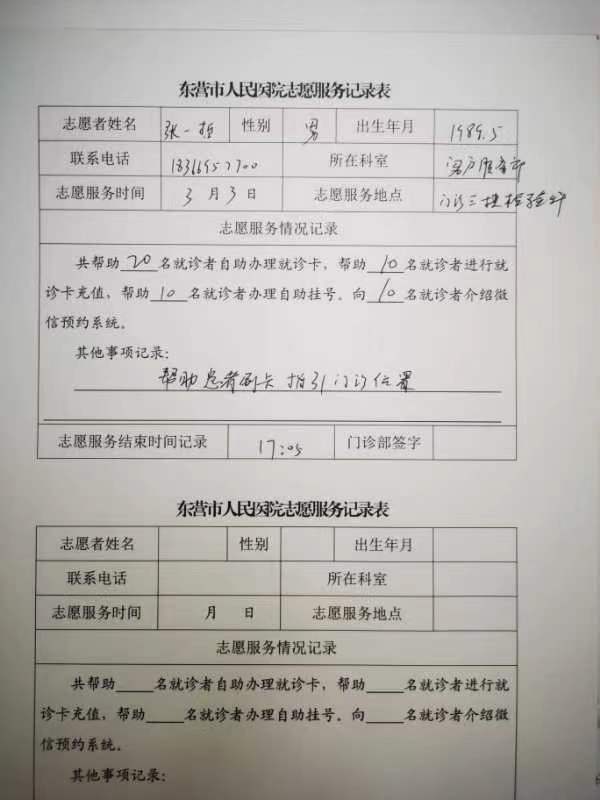 东营市人民医院志愿服务记录表
志愿者姓名 张一哲 性别 男 出生年月 1989.5
联系电话 所在科室 客户服务部
志愿服务时间 3月3日 志愿服务地点 门诊三楼检验科
志愿服务情况记录
共帮助20名就诊者自助办理就诊卡，帮助10名就诊者进行就
诊卡充值，帮助10名就诊者办理自助挂号。向10名就诊者介绍微
信预约系统。
其他事项记录：
帮助患者刷卡 指引门诊位置
志愿服务结束时间记录 17:05 门诊部签字
东营市人民医院志愿服务记录表
志愿者姓名 性别 出生年月
联系电话 所在科室
志愿服务时间 月 日 志愿服务地点
志愿服务情况记录
共帮助____名就诊者自助办理就诊卡，帮助____名就诊者进行就
诊卡充值，帮助____名就诊者办理自助挂号。向____名就诊者介绍微
信预约系统。
其他事项记录：